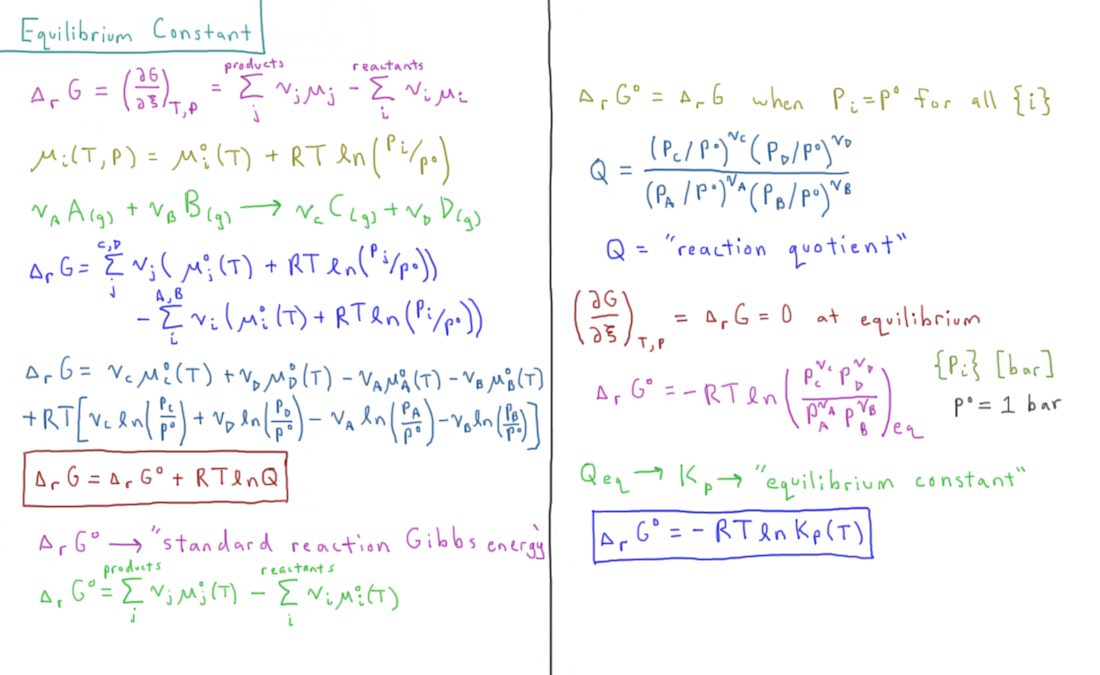 Equilibrium Constant
Δ_r G = (∂G/∂ξ)_T,P = Σ_j^products ν_j μ_j − Σ_i^reactants ν_i μ_i
μ_i(T,P) = μ_i°(T) + RT ln(P_i/P°)
ν_A A(g) + ν_B B(g) → ν_C C(g) + ν_D D(g)
Δ_r G = Σ_j^C,D ν_j(μ_j°(T) + RT ln(P_j/P°))
− Σ_i^A,B ν_i(μ_i°(T) + RT ln(P_i/P°))
Δ_r G = ν_C μ_C°(T) + ν_D μ_D°(T) − ν_A μ_A°(T) − ν_B μ_B°(T)
+ RT[ν_C ln(P_C/P°) + ν_D ln(P_D/P°) − ν_A ln(P_A/P°) − ν_B ln(P_B/P°)]
Δ_r G = Δ_r G° + RT ln Q
Δ_r G° → "standard reaction Gibbs energy"
Δ_r G° = Σ_j^products ν_j μ_j°(T) − Σ_i^reactants ν_i μ_i°(T)
Δ_r G° = Δ_r G when P_i = P° for all {i}
Q = (P_C/P°)^ν_C (P_D/P°)^ν_D / (P_A/P°)^ν_A (P_B/P°)^ν_B
Q = "reaction quotient"
(∂G/∂ξ)_T,P = Δ_r G = 0 at equilibrium
{P_i} [bar]
Δ_r G° = −RT ln(P_C^ν_C P_D^ν_D / P_A^ν_A P_B^ν_B)_eq
P° = 1 bar
Q_eq → K_P → "equilibrium constant"
Δ_r G° = −RT ln K_P(T)